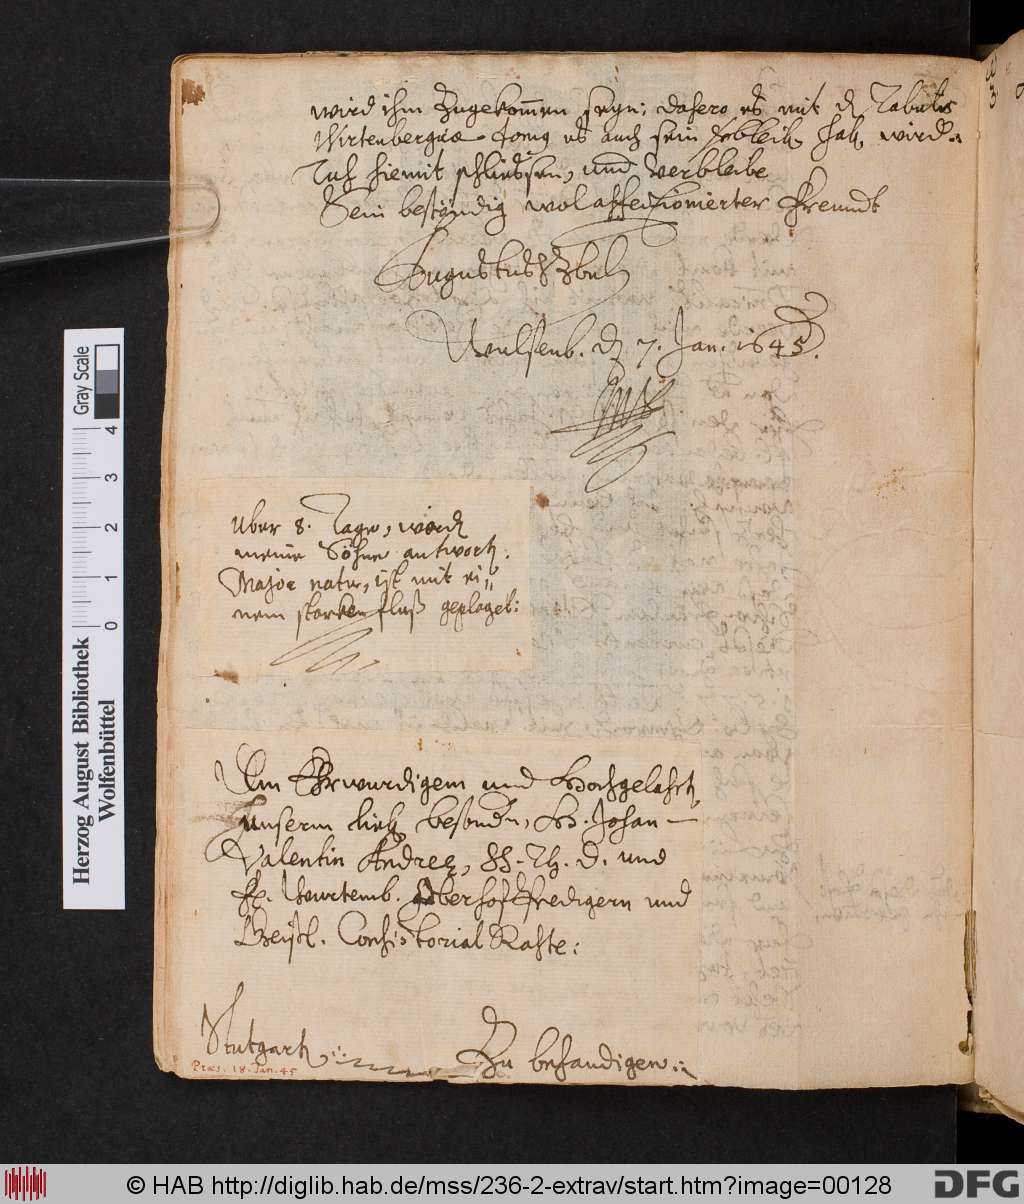 wird ihm zugekommen seyn: dafero es mit d Tabula
Wirtenbergica es auch sein verbleib hab wird.
Ich hiemit schliessen, und verbleibe
Sein bestendig wolaffectionierter Freundt
Augustus HzBuL
Wulfenb. d 7. Jan. 1645.
Uber 8. Tage, wird
meine Söhne antwort.
Major natu, ist mit ei=
nem starken fluß geplaget:
Dem Ehrwurdigem und Hochgelahrt
unserm lieb besondn, H. Johan
Valentin Andreæ, SS. Th. D. und
F. Wurtemb. Oberhof Predigern und
Geistl. Consistorial Rahte:
Stutgart
Zu behandigen
Præs. 18. Jan. 45
Gray Scale
0 1 2 3 4
Herzog August Bibliothek
Wolfenbüttel
© HAB http://diglib.hab.de/mss/236-2-extrav/start.htm?image=00128
DFG